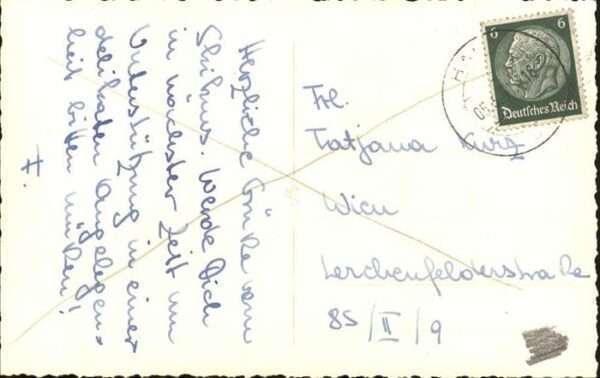 Herzliche Grüße vom
Skikurs. Werde Dich
in nächster Zeit um
Unterstützung in einer
delikaten Angelegen-
heit bitten müßen!
H.
Frl.
Tatjana Kurz
Wien
Lerchenfelderstraße
85/II/9
6 6
Deutsches Reich